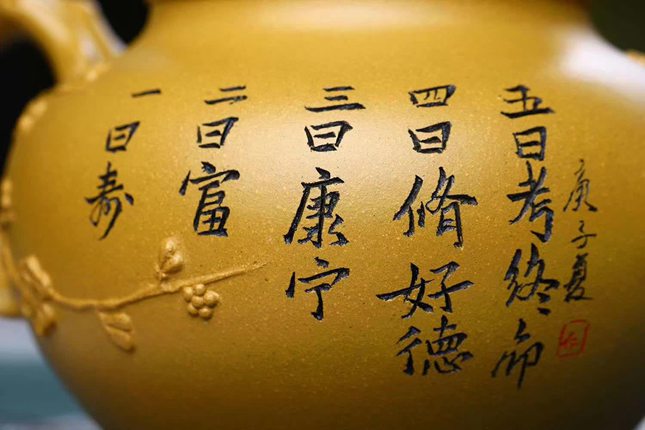 一曰寿
二曰富
三曰康宁
四曰脩好德
五曰考终命
庚子夏